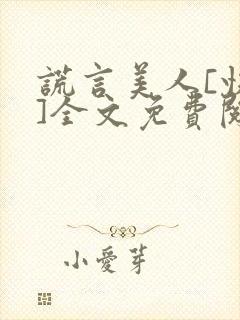 謊言美人[
]全文免費
小愛芽